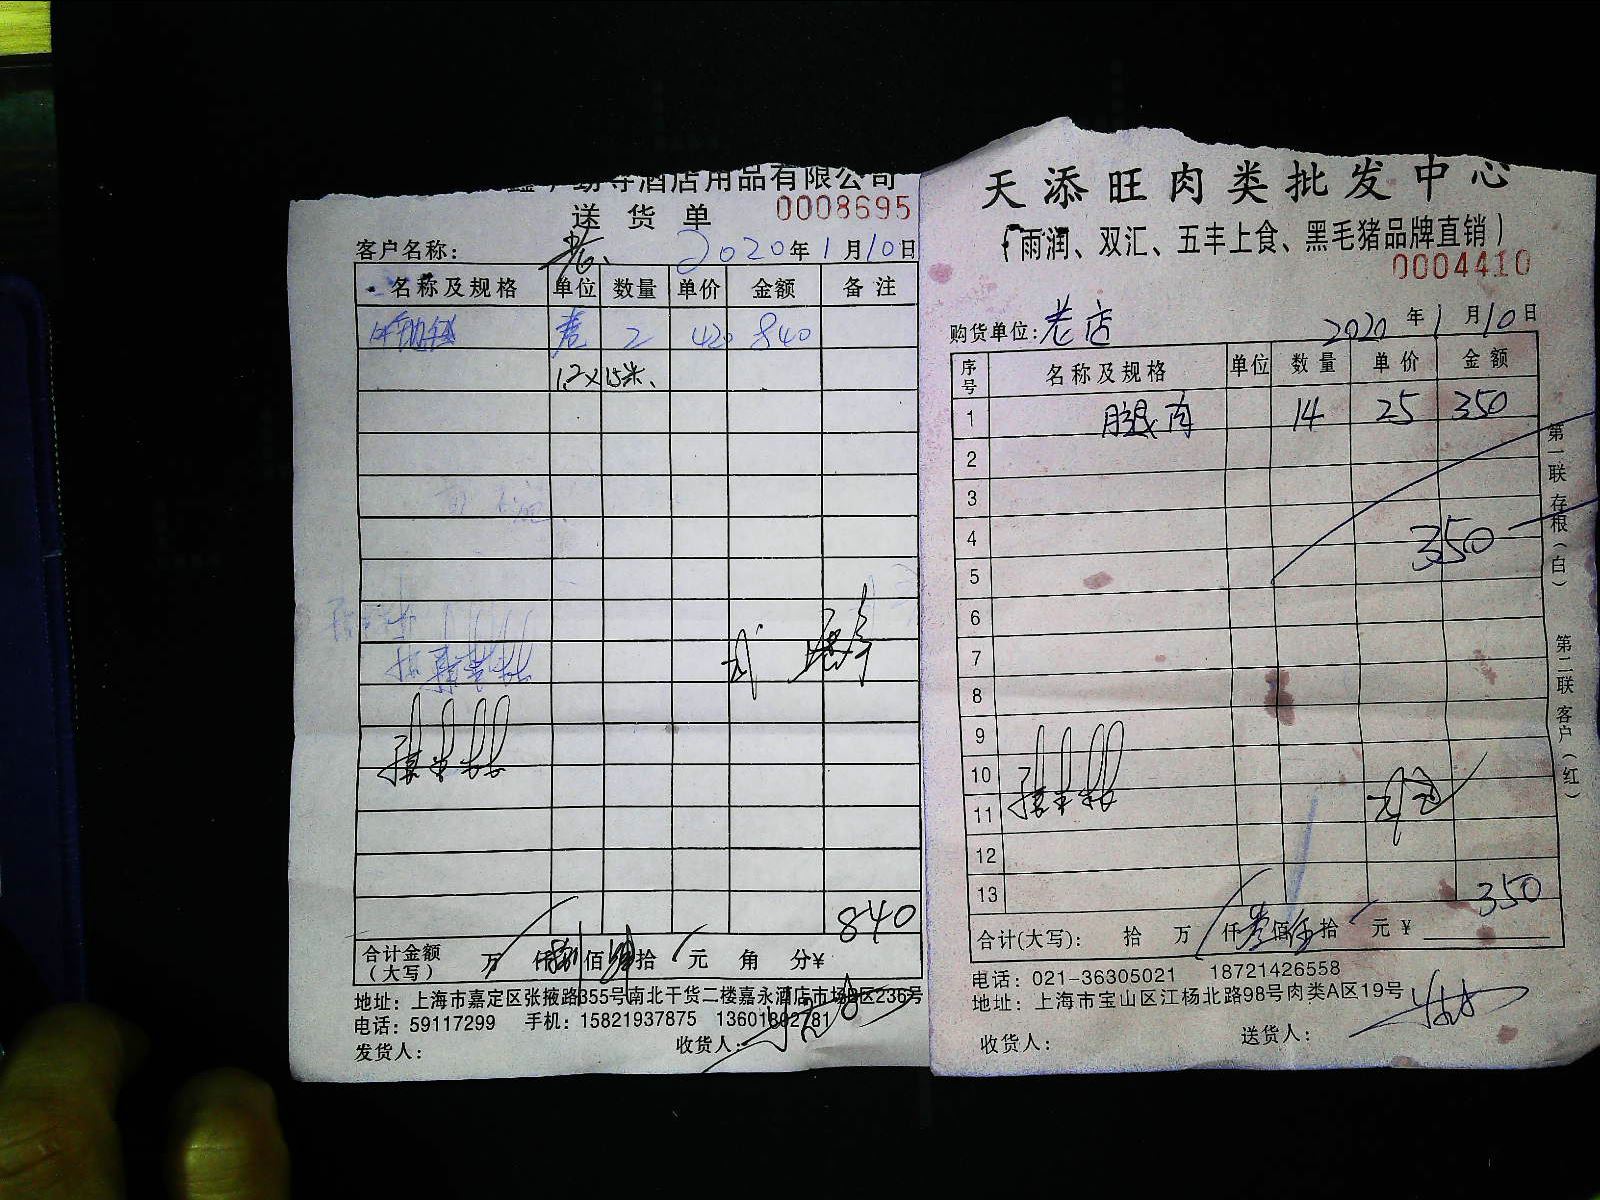 酒店用品有限公司
送货单 0008695
客户名称: 2020年1月10日
名称及规格 单位 数量 单价 金额 备注
卷 2 420 840
1.2×15米
840
合计金额(大写) 万 仟 佰 拾 元 角 分¥
地址: 上海市嘉定区张掖路355号南北干货二楼嘉永酒店市场B区236号
电话: 59117299 手机: 15821937875 13601802781
发货人: 收货人:
天添旺肉类批发中心
(雨润、双汇、五丰上食、黑毛猪品牌直销)
0004410
购货单位: 老店 2020年1月10日
序号 名称及规格 单位 数量 单价 金额
1 腿肉 14 25 350
2
3
4 350
5
6
7
8
9
10
11
12
13 350
合计(大写): 拾 万 仟叁佰伍拾 元 ¥
电话: 021-36305021 18721426558
地址: 上海市宝山区江杨北路98号肉类A区19号
收货人: 送货人:
第一联 存根(白)
第二联 客户(红)